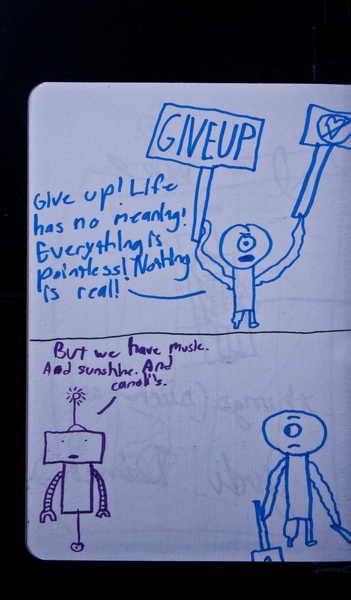 GIVEUP
Give up! Life
has no meaning!
Everything is
pointless! Nothing
is real!
But we have music.
And sunshine. And